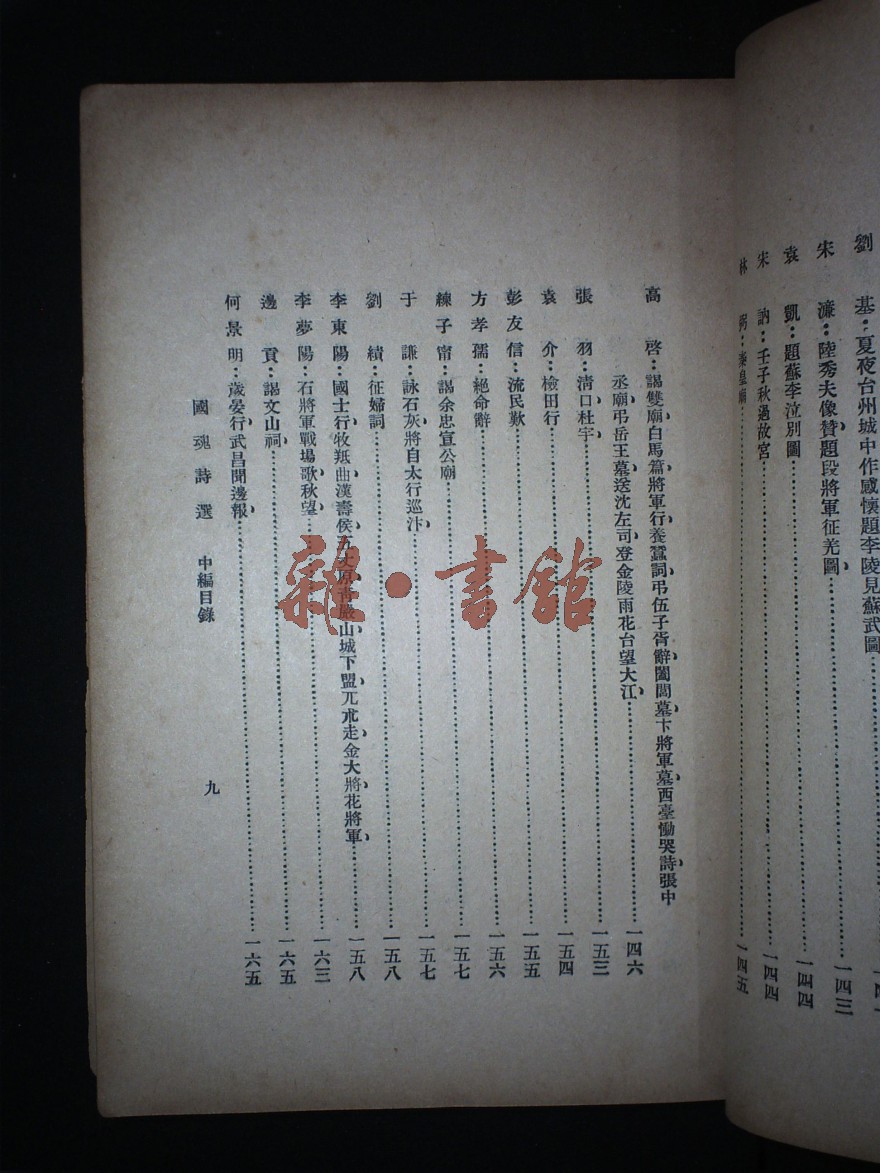 劉　基：夏夜台州城中作感懷題李陵見蘇武圖……
宋　濂：陸秀夫像贊、題段將軍征羌圖……一四三
袁　凱：題蘇李泣別圖……一四四
宋　訥：壬子秋過故宮……一四四
林　弼：秦皇廟……一四五
高　啓：謁雙廟、白馬篇、將軍行、養蠶詞、弔伍子胥辭、闔閭墓、卞將軍墓、西臺慟哭詩、張中
丞廟、弔岳王墓、送沈左司、登金陵雨花台望大江、……一四六
張　羽：清口、杜宇……一五三
袁　介：檢田行……一五四
彭友信：流民歎……一五五
方孝孺：絕命辭……一五六
練子甯：謁余忠宣公廟……一五七
于　謙：詠石灰、將自太行巡汴、……一五七
劉　績：征婦詞……一五八
李東陽：國士行、牧羝曲、漢壽侯、五丈原、青巖山、城下盟、兀朮走、金大將、花將軍、……一五八
李夢陽：石將軍戰場歌、秋望……一六三
邊　貢：謁文山祠、……一六五
何景明：歲晏行、武昌聞邊報、……一六五
國魂詩選　中編目錄　九
雜·書館